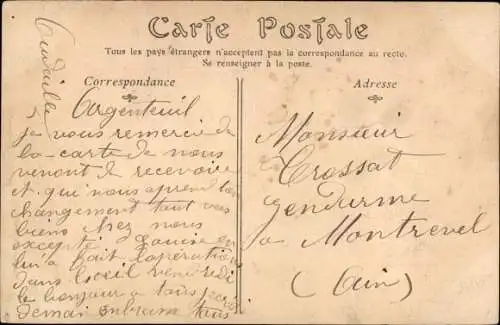 Carte Postale
Tous les pays étrangers n'acceptent pas la correspondance au recto.
Se renseigner à la poste.
Correspondance
Adresse
Argenteuil
je vous remercie de
la carte de nous
venont de recevoire
et qui nous aprend le
changement tout vas
biens chez nous
excepté Louise on
lui a fait l'opération
dans l'oeil vendredi
le bonjour a tous
demai
Monsieur
Crossat
gendarme
a Montrevel
(Ain)